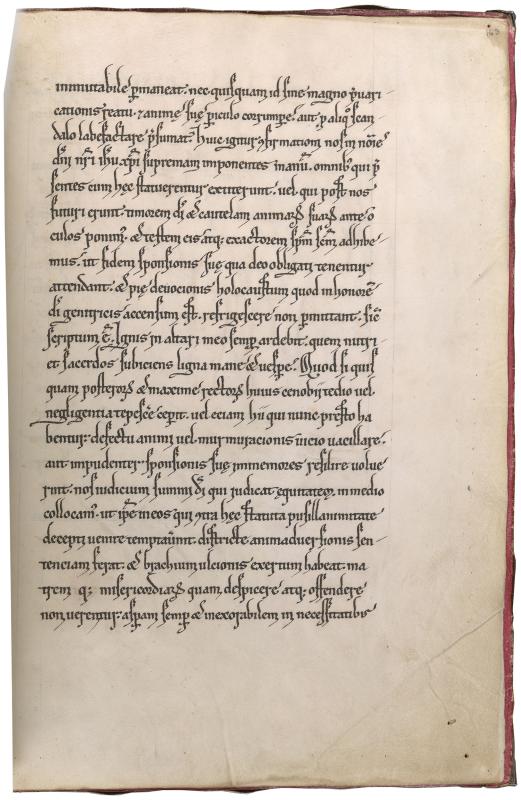 immutabile p̄maneat. nec quisquam id sine magno p̄uari-
cationis reatu. ⁊ anime suę piculo corrumpe. aut p aliq̄ scan
dalo labefactare p̄sumat. Huic igitur ꝯfirmationi nos in nōie
dn̄i nr̄i ihu xp̄i supremam imponentes manū. omnib; qui p̄
sentes cum hęc statuerentur extiterunt. uel qui post nos
futuri erunt. timorem di ̄ & cautelam animarꝝ suarꝝ ante o
culos ponim᷒. & testem eis atq; exactorem sp̄m sc̄m adhibe-
mus. ut fidem sponsionis suę qua deo obligati tenentur
attendant. & pię deuocionis holocaustum quod in honorē
dī genitricis accensum est. refrigescere non p̄mittant. sic̄
scriptum ē. Ignis in altari meo semp̄ ardebit. quem nutri-
et sacerdos subiciens ligna mane & uespe. Quod si quis
quam posterorꝝ & maxime rectorꝝ huius cenobii tedio uel
negligentia tepescē cęperit. uel eciam hii qui nunc presto ha
bentur: defectu animi uel murmuracionis uicio uacillare.
aut impudenter sponsionis suę inmemores resilire uolue
rint. nos iudicium summi dī qui iudicat equitatem in medio
collocam᷒. ut ipse in eos qui ꝯtra hęc statuta pusillanimitate
decepti uenire temptauīnt. districte animaduersionis sen-
tenciam ferat. & brachium ulcionis exertum habeat. ma
trem q; misericordiarꝝ quam despicere atq; offendere
non uerentur: asperam semp̄ & inexorabilem in necessitatibus